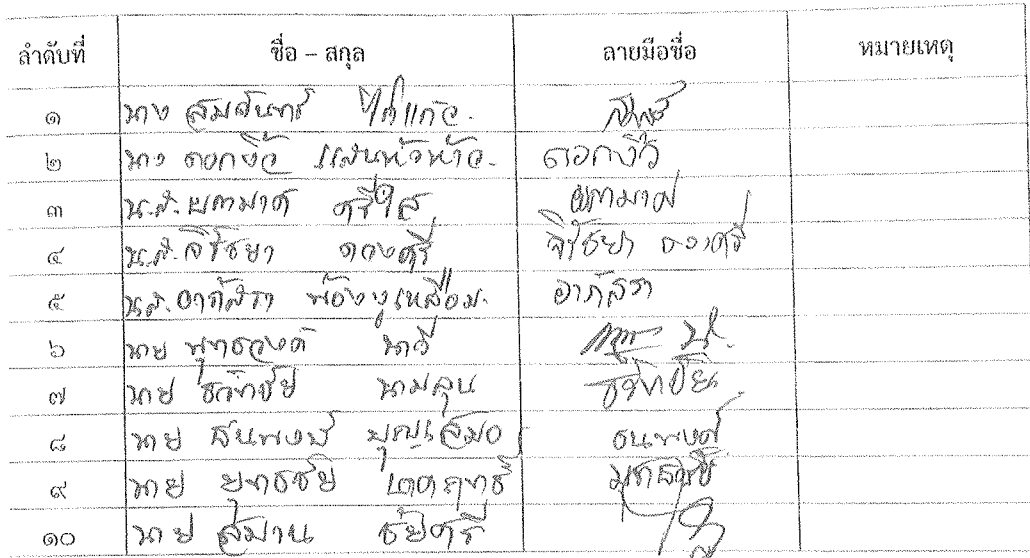 ลำดับที่ ชื่อ – สกุล ลายมือชื่อ หมายเหตุ
๑ นาง สมจันทร์ ไต่แก้ว
๒ นาง ดอกงิ้ว แสนหัวห้าว ดอกงิ้ว
๓ น.ส. ผกามาศ ศรีใส ผกามาศ
๔ น.ส. จิรัชยา ดวงศรี จิรัชยา ดวงศรี
๕ น.ส. อาภัสรา พ้องงูเหลือม อาภัสรา
๖ นาย พุทธวงค์ นาวี
๗ นาย ธวัทชัย นามลุน ธวัทชัย
๘ นาย ธนพงษ์ บุญเสมอ ธนพงศ์
๙ นาย ยุทธชัย เดชฤทธิ์
๑๐ นาย สมาน ชัยศรี